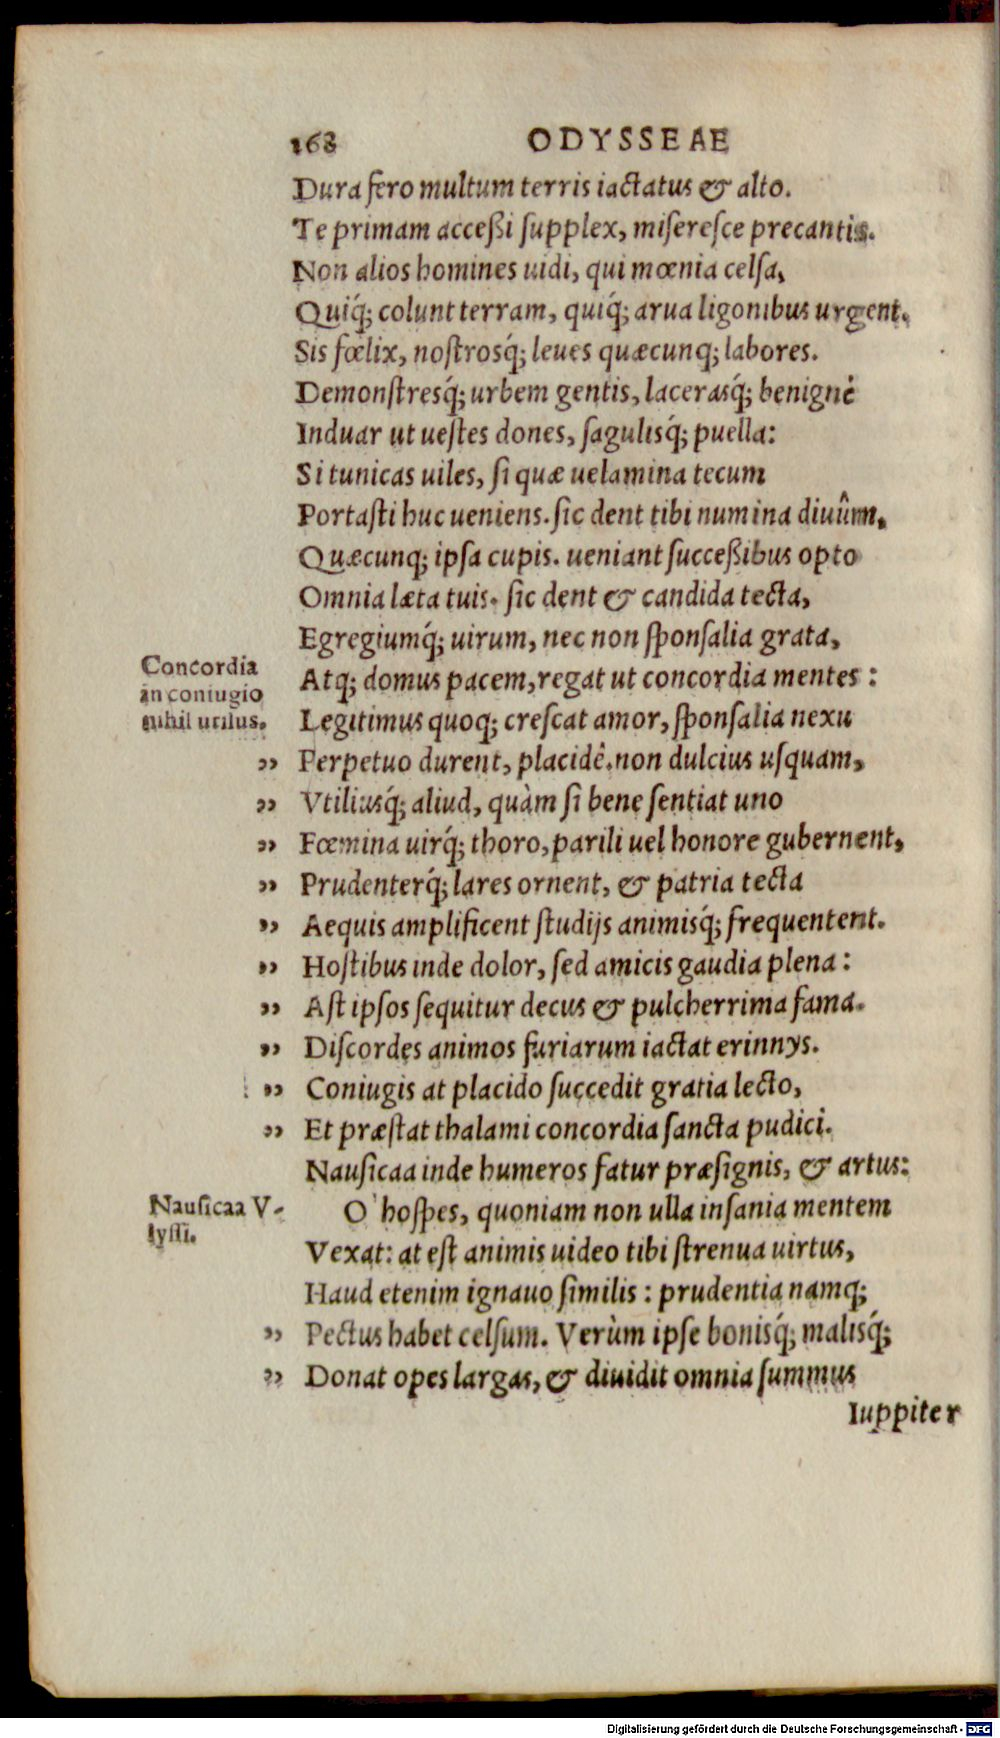 168 ODYSSEAE
Dura fero multum terris iactatus & alto.
Te primam acceßi supplex, miseresce precantis.
Non alios homines uidi, qui mœnia celsa,
Quiq́; colunt terram, quiq́; arua ligonibus urgent.
Sis fœlix, nostrosq́; leues quæcunq; labores.
Demonstresq́; urbem gentis, lacerasq́; benignè
Induar ut uestes dones, sagulisq́; puella:
Si tunicas uiles, si quæ uelamina tecum
Portasti huc ueniens. sic dent tibi numina diuûm,
Quæcunq; ipsa cupis. ueniant succeßibus opto
Omnia læta tuis. sic dent & candida tecta,
Egregiumq́; uirum, nec non sponsalia grata,
Concordia
in coniugio
nihil utilus.
Atq; domus pacem, regat ut concordia mentes:
Legitimus quoq; crescat amor, sponsalia nexu
„ Perpetuo durent, placidè. non dulcius usquam,
„ Vtiliusq́; aliud, quàm si bene sentiat uno
„ Fœmina uirq́; thoro, parili uel honore gubernent,
„ Prudenterq́; lares ornent, & patria tecta
„ Aequis amplificent studijs animisq́; frequentent.
„ Hostibus inde dolor, sed amicis gaudia plena:
„ Ast ipsos sequitur decus & pulcherrima fama.
„ Discordes animos furiarum iactat erinnys.
„ Coniugis at placido succedit gratia lecto,
„ Et præstat thalami concordia sancta pudici.
Nausicaa inde humeros fatur præsignis, & artus:
Nausicaa V-
lyssi.
O' hospes, quoniam non ulla insania mentem
Vexat: at est animis uideo tibi strenua uirtus,
Haud etenim ignauo similis: prudentia namq;
„ Pectus habet celsum. Verùm ipse bonisq́; malisq́;
„ Donat opes largas, & diuidit omnia summus
Iuppiter
Digitalisierung gefördert durch die Deutsche Forschungsgemeinschaft - DFG